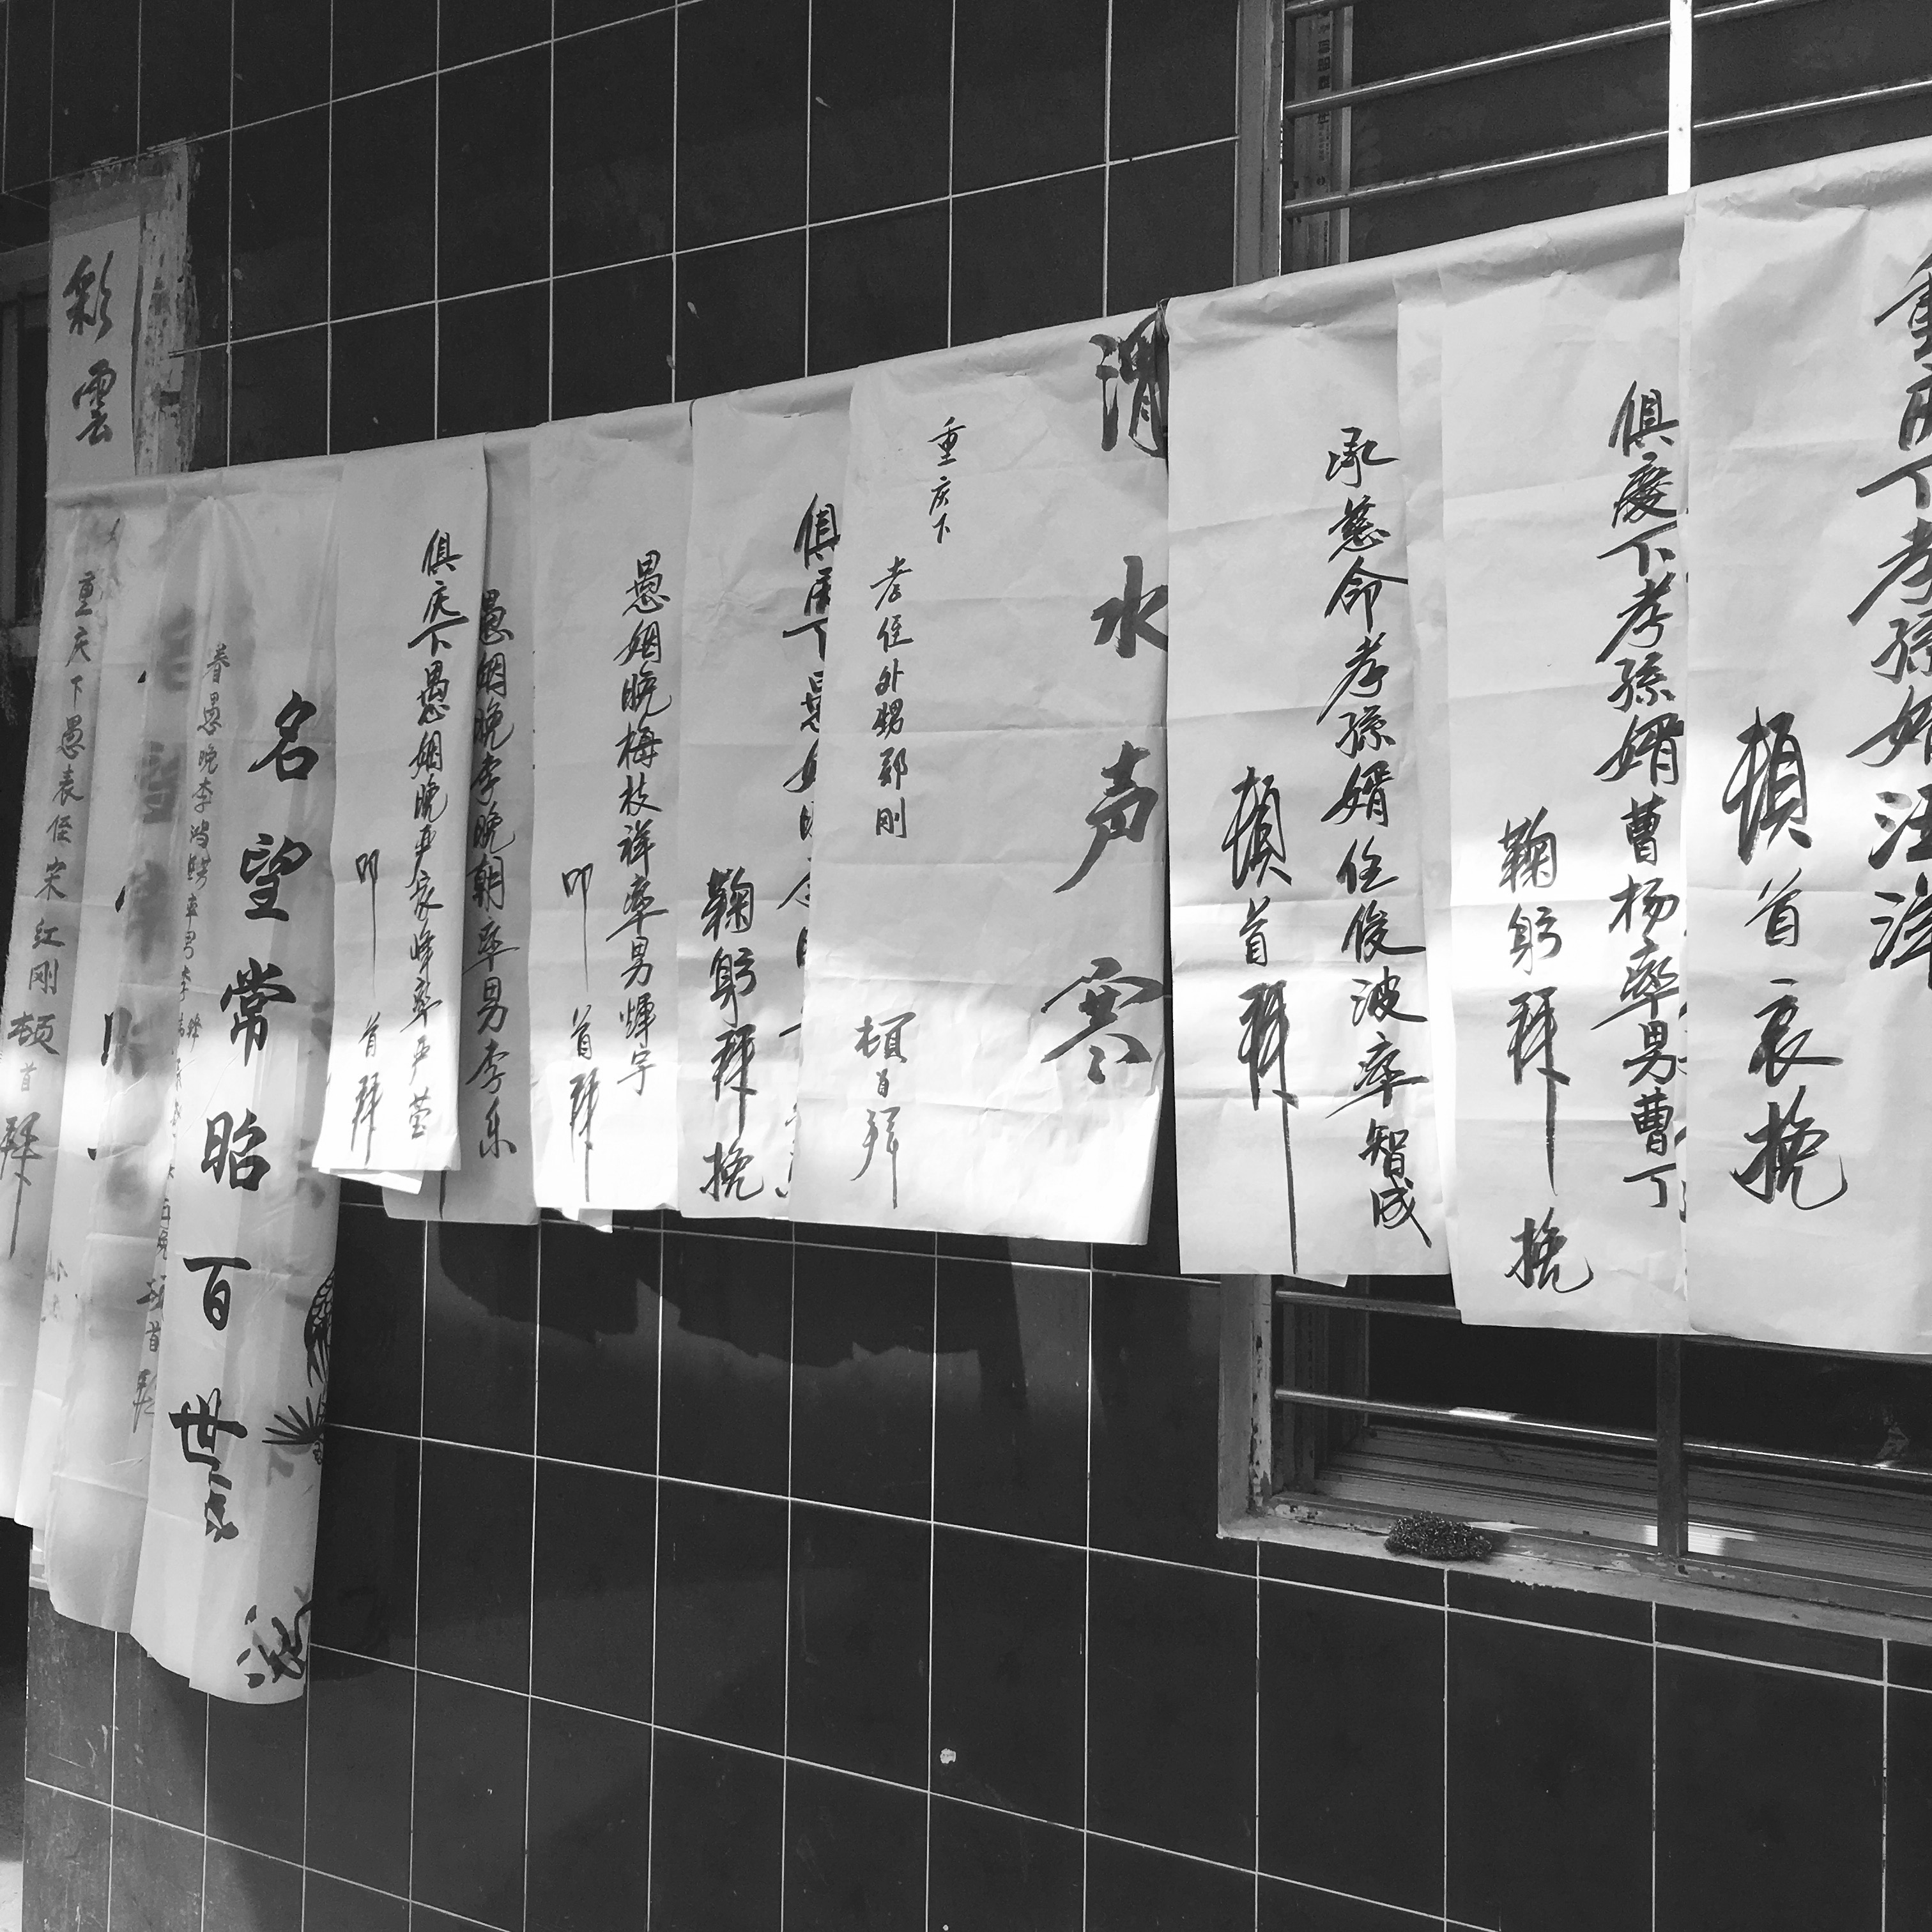 彩雲
重庆下孝孫婿汪洋
頓首哀挽
俱慶下孝孫婿曹杨率男曹丁
鞠躬拜挽
承慈命孝孫婿任俊波率智成
頓首拜
渭水声寒
重庆下
孝侄外甥郭刚
頓首拜
俱庆下愚
鞠躬拜挽
愚姻晚梅枝祥率男輝宇
叩首拜
愚姻晚李晚朝率男李乐
俱庆下愚姻晚严家峰率严莹
叩首拜
名望常昭百世
眷愚晚李鸿
首拜
重庆下愚表侄宋红刚頓首拜